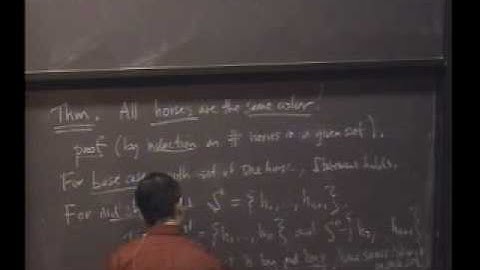 Thm. All horses are the same color!
proof (by induction on # horses in a given set).
For base case with set of one horse, statement holds.
For ind S = {h₁, ..., hₙ₊₁},
= {h₁, ..., hₙ} and S'' = {h₂, ..., hₙ₊₁}
have same color